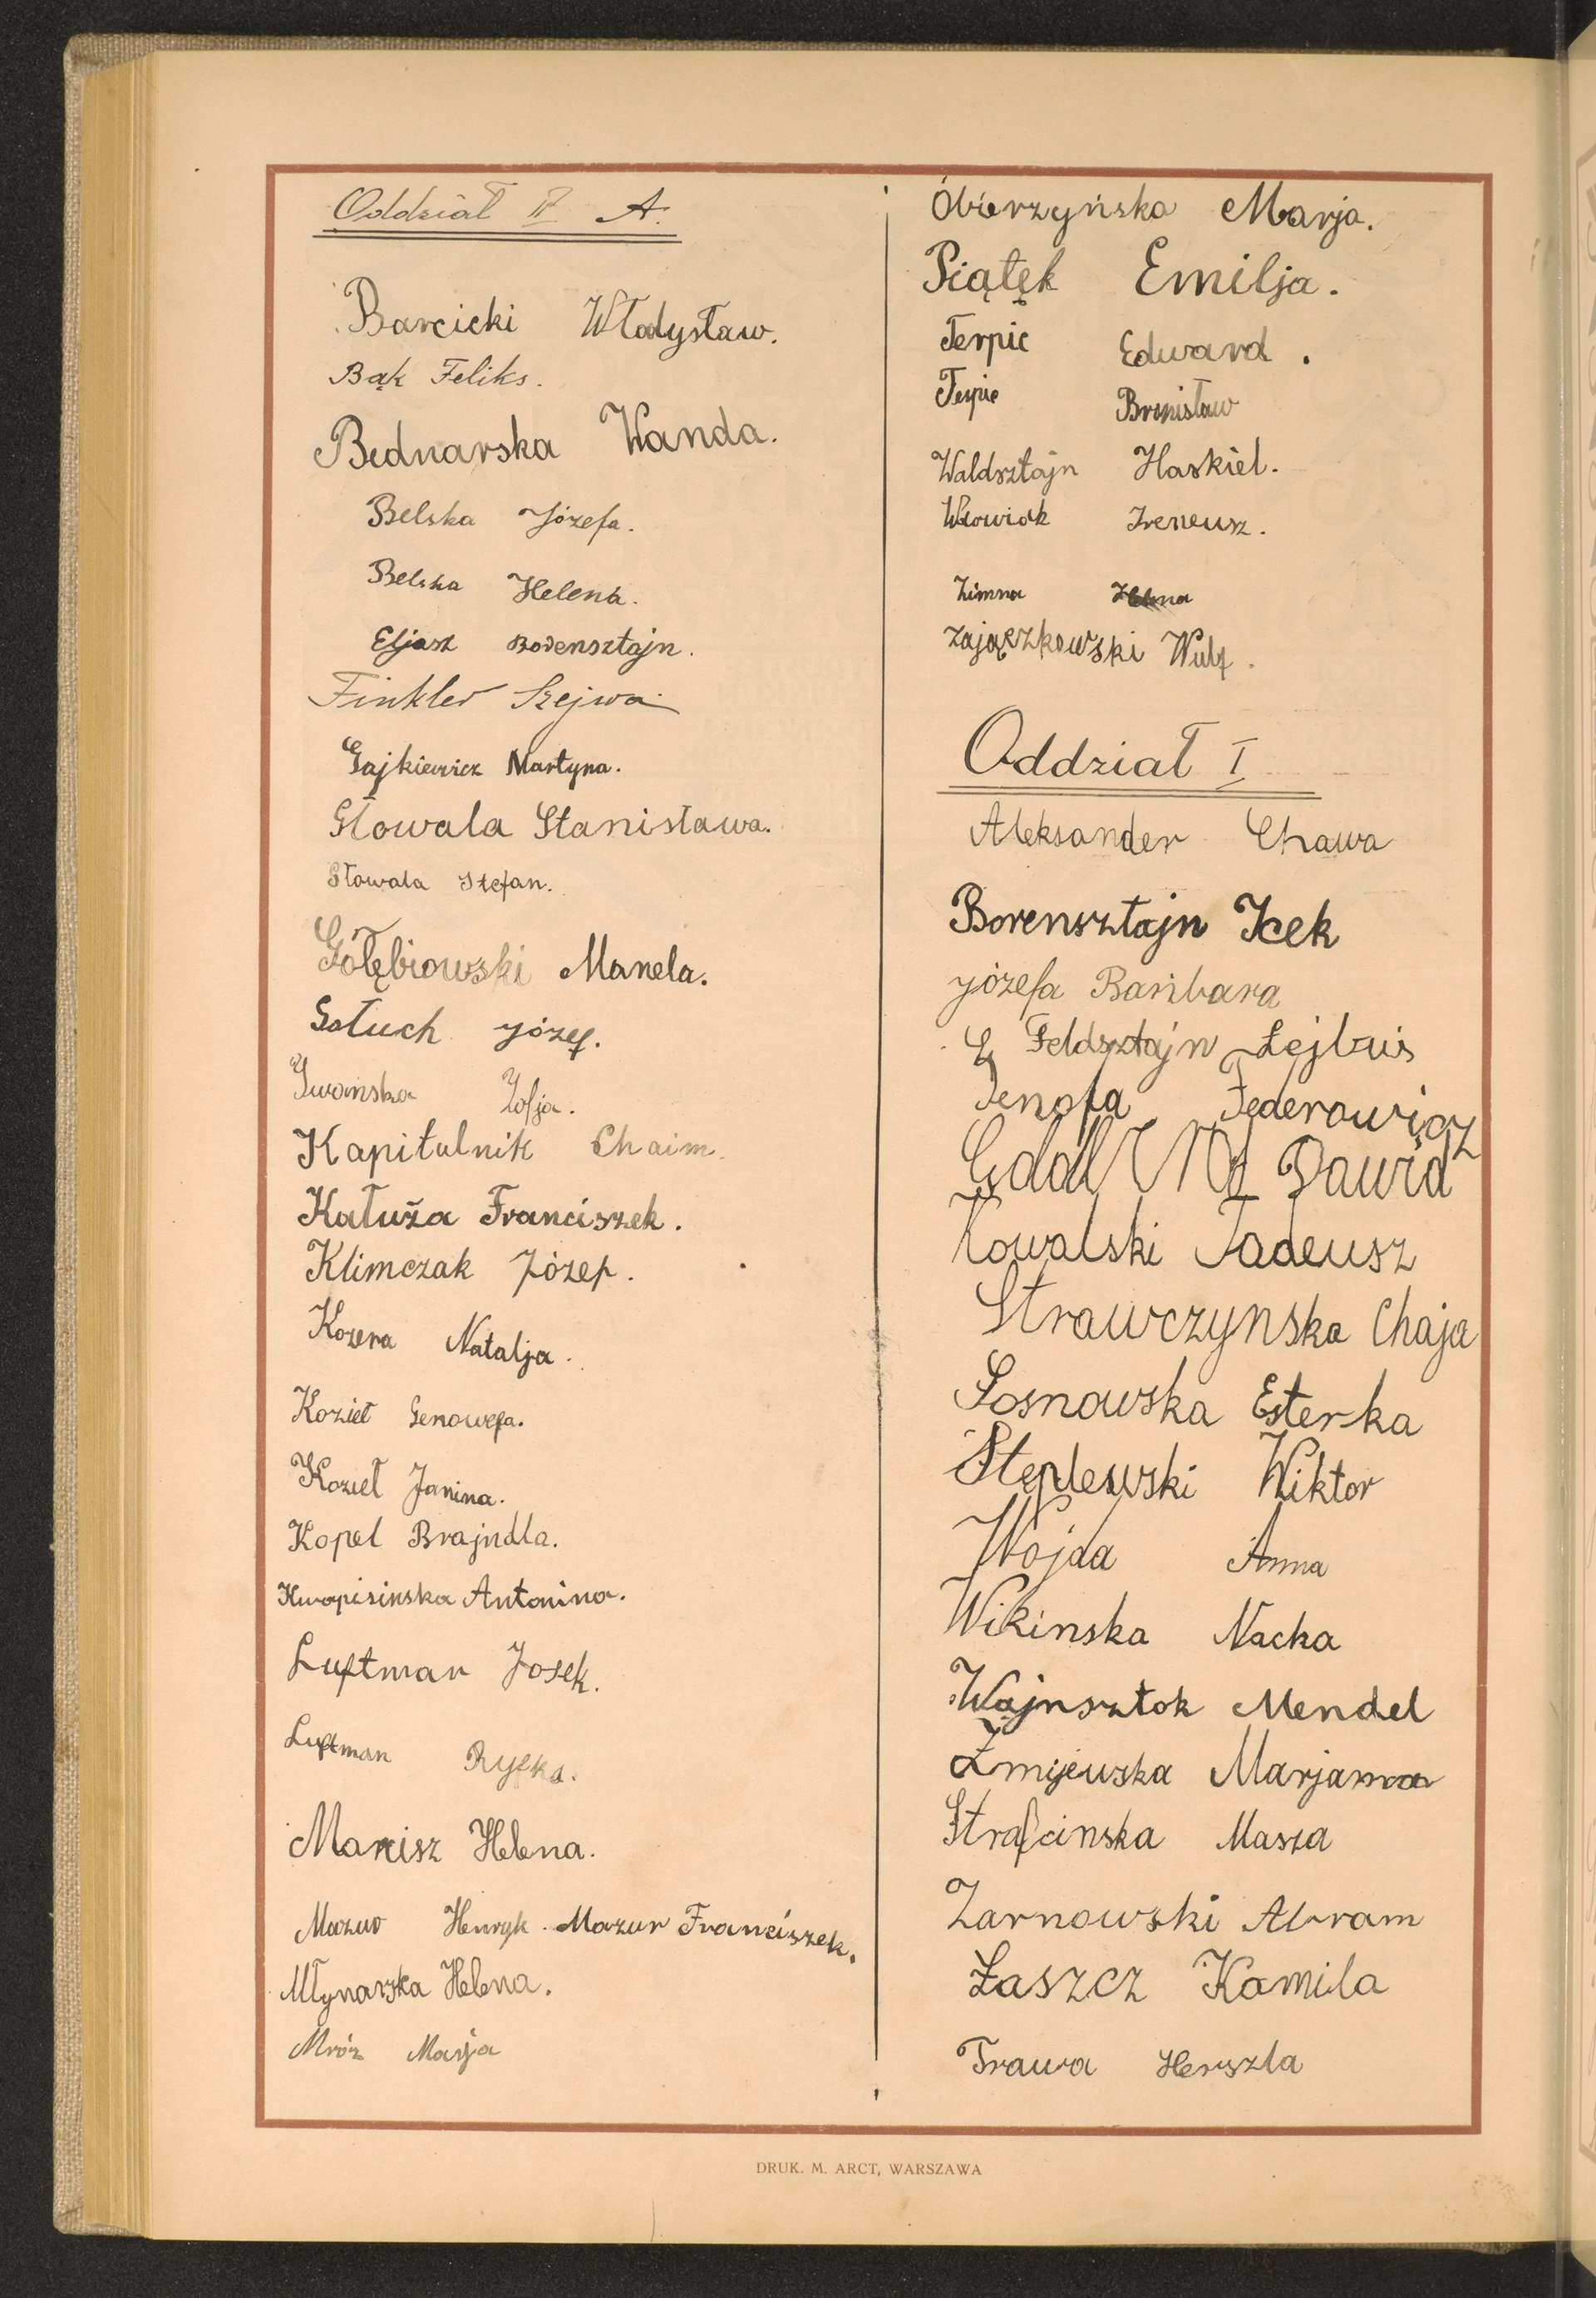 Oddział II A.
Barcicki Władysław.
Bąk Feliks.
Bednarska Wanda.
Belska Józefa.
Belska Helena.
Eljasz Borensztajn.
Finkler Szejwa
Gajkiewicz Martyna.
Głowala Stanisława.
Głowala Stefan.
Gołębiowski Manela.
Gołuch Józef.
Iwańska Zofja.
Kapitulnik Chaim.
Kałuża Franciszek.
Klimczak Józef.
Kozera Natalja.
Kozieł Genowefa.
Kozieł Janina.
Kopel Brajndla.
Kwapisinska Antonina.
Luftman Josek.
Luftman Ryfka.
Marcisz Helena.
Mazur Henryk. Mazur Franciszek.
Młynarska Helena.
Mróz Marja
Obierzyńska Marja.
Piątek Emilja.
Terpic Edward.
Terpic Bronisław
Waldsztajn Haskiel.
Ireneusz.
Zimna Helena
Zajączkowski Wulf.
Oddział I
Aleksander Chawa
Borensztajn Icek
Józefa Baribara
Feldsztajn Lejbuś
Federowicz
Dawid
Kowalski Tadeusz
Strawczynska Chaja
Sosnowska Esterka
Stęplewski Wiktor
Wojda Anna
Wikinska Nacka
Wajnsztok Mendel
Żmijewska Marjanna
Strafcinska Masza
Zarnowski Abram
Łaszcz Kamila
Trawa Herszla
DRUK. M. ARCT, WARSZAWA